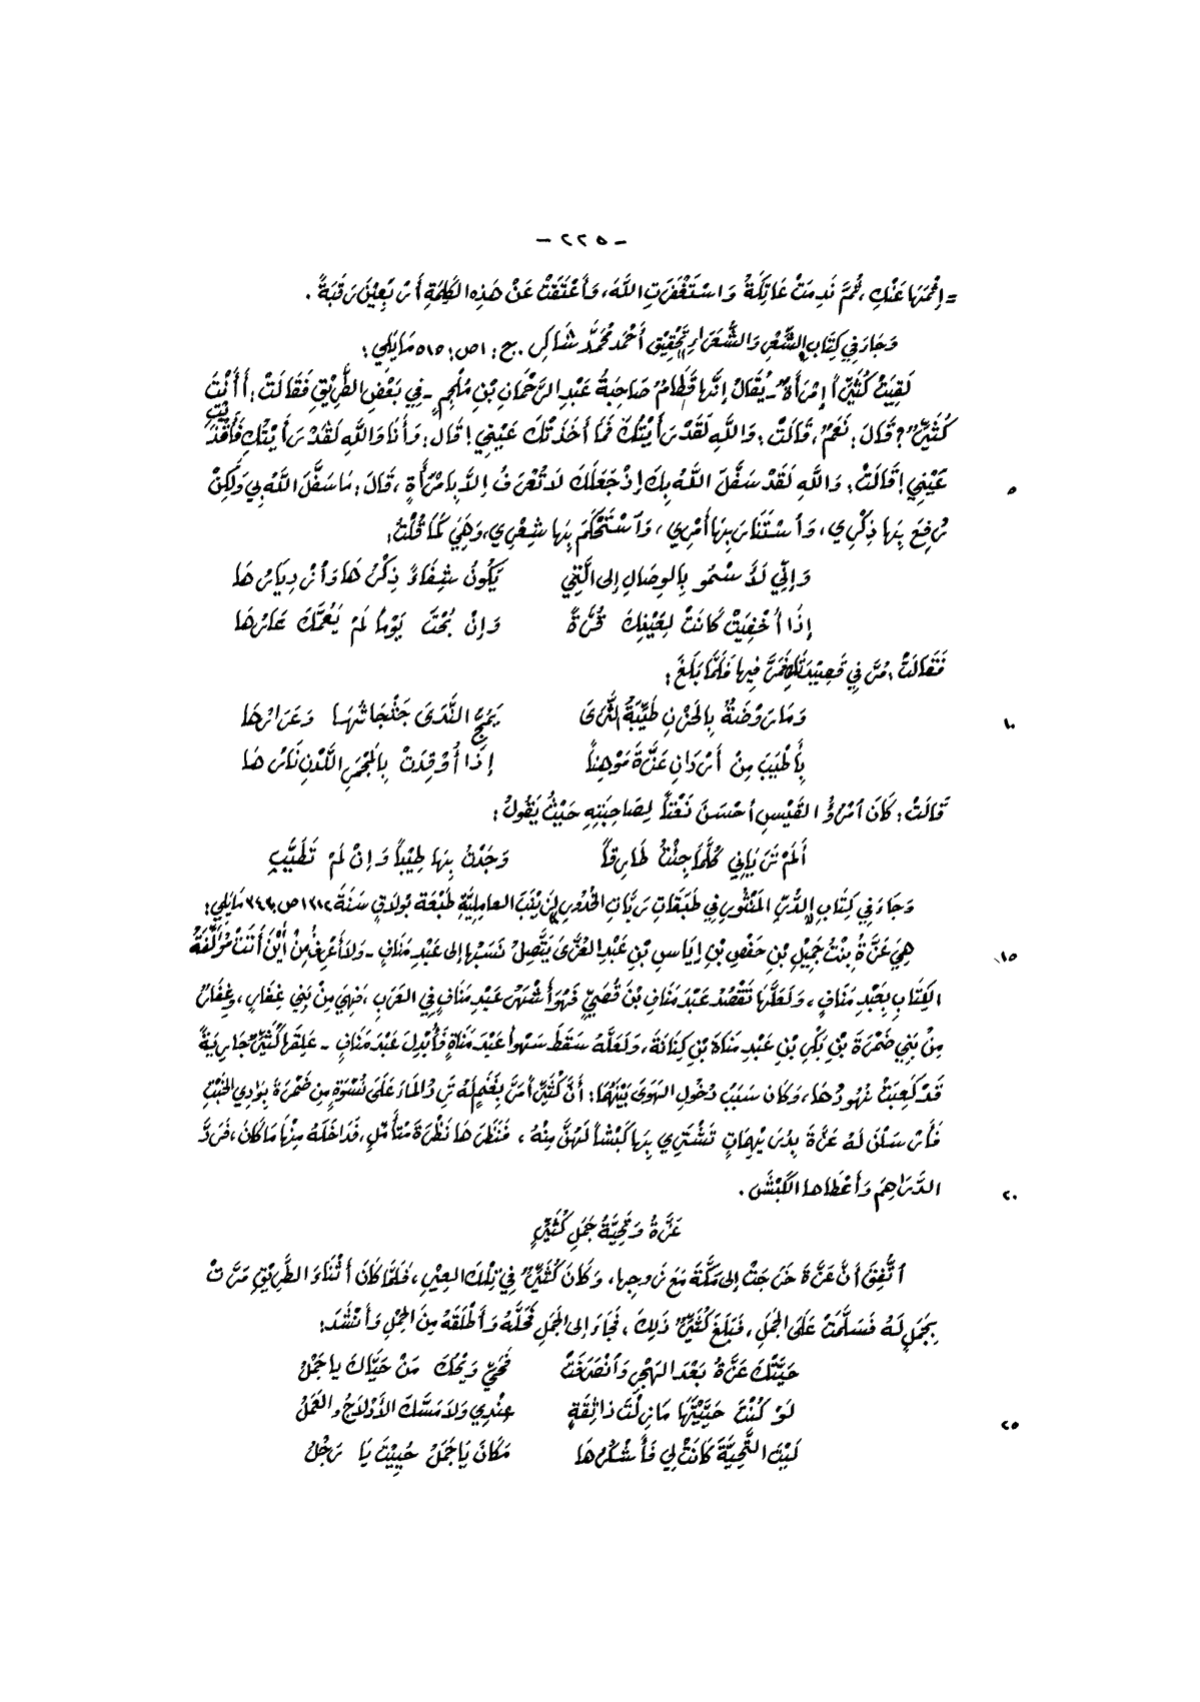 - ٢٢٥ -
= إِثْمَهَا عَنْكِ، ثُمَّ نَدِمَتْ عَاتِكَةُ وَاسْتَغْفَرَتِ اللّٰهَ، وَأَعْتَقَتْ عَنْ هَذِهِ الكَلِمَةِ أَرْبَعِيْنَ رَقَبَةً.
وَجَاءَ فِي كِتَابِ الشِّعْرِ وَالشُّعَرَاءِ تَحْقِيْق أَحْمَد مُحَمَّد شَاكِر. ج: ١ ص: ٥١٥ مَا يَلِي:
لَقِيَتْ كُثَيِّراً امْرَأَةٌ - يُقَالُ إِنَّهَا قَطَامُ صَاحِبَةُ عَبْدِ الرَّحْمَانِ بْنِ مُلْجِمٍ - فِي بَعْضِ الطَّرِيْقِ فَقَالَتْ: أَأَنْتَ
كُثَيِّرٌ؟ قَالَ: نَعَمْ، قَالَتْ: وَاللّٰهِ لَقَدْ رَأَيْتُكَ فَمَا أَخَذَتْكَ عَيْنِي! قَالَ: وَأَنَا وَاللّٰهِ لَقَدْ رَأَيْتُكِ فَأَقْذَيْتِ
عَيْنِي! قَالَتْ: وَاللّٰهِ لَقَدْ سَفَّلَ اللّٰهُ بِكَ إِذْ جَعَلَكَ لَا تُعْرَفُ إِلَّا بِامْرَأَةٍ، قَالَ: مَا سَفَّلَ اللّٰهُ بِي وَلَكِنْ ٥
رُفِعَ بِهَا ذِكْرِي، وَاسْتَنَارَ بِهَا أَمْرِي، وَاسْتَحْكَمَ بِهَا شِعْرِي، وَهِيَ كَمَا قُلْتُ:
وَإِنِّي لَأَسْمُو بِالوِصَالِ إِلَى الَّتِي يَكُونُ شِفَاءً ذِكْرُهَا وَازْدِيَارُهَا
إِذَا أُخْفِيَتْ كَانَتْ لِعَيْنِكَ قُرَّةً وَإِنْ بُحْتَ يَوْماً لَمْ يَعُمَّكَ عَارُهَا
فَقَالَتْ: مُرَّ فِي قَصِيْدَتِكَ فَمَرَّ فِيهَا فَلَمَّا بَلَغَ:
وَمَا رَوْضَةٌ بِالحَزْنِ طَيِّبَةُ الثَّرَى يَمُجُّ النَّدَى جَثْجَاثُهَا وَعَرَارُهَا ١٠
بِأَطْيَبَ مِنْ أَرْدَانِ عَزَّةَ مَوْهِناً إِذَا أُوْقِدَتْ بِالمِجْمَرِ اللَّدْنِ نَارُهَا
قَالَتْ: كَانَ امْرُؤُ القَيْسِ أَحْسَنَ نَعْتاً لِصَاحِبَتِهِ حَيْثُ يَقُولُ:
أَلَمْ تَرَيَانِي كُلَّمَا جِئْتُ طَارِقاً وَجَدْتُ بِهَا طِيْباً وَإِنْ لَمْ تَطَيَّبِ
وَجَاءَ فِي كِتَابِ الدُّرِّ المَنْثُورِ فِي طَبَقَاتِ رَبَّاتِ الخُدُورِ لِزَيْنَبَ العَامِلِيَّةِ طَبْعَة بُولَاق سَنَةَ ١٣١٢ ص: ٣٤٣ مَا يَلِي:
هِيَ عَزَّةُ بِنْتُ جَمِيْلِ بْنِ حَفْصِ بْنِ إِيَاسِ بْنِ عَبْدِ العُزَّى يَتَّصِلُ نَسَبُهَا إِلَى عَبْدِ مَنَافٍ - وَلَا أَعْرِفُ مِنْ أَيْنَ أَتَتْ مُؤَلِّفَةُ ١٥
الكِتَابِ بِعَبْدِ مَنَافٍ، وَلَعَلَّهَا تَقْصُدُ عَبْدَ مَنَافِ بْنَ قُصَيٍّ فَهُوَ أَشْهَرُ عَبْدِ مَنَافٍ فِي العَرَبِ، فَهِيَ مِنْ بَنِي غِفَارٍ، وَغِفَارٌ
مِنْ بَنِي ضَمْرَةَ بْنِ بَكْرِ بْنِ عَبْدِ مَنَاةَ بْنِ كِنَانَةَ، وَلَعَلَّهُ سَقَطَ سَهْواً عَبْدَ مَنَاةٍ فَأُبْدِلَ عَبْدَ مَنَافٍ - عَلِقَهَا كُثَيِّرٌ جَارِيَةً
قَدْ كَعِبَتْ نُهُودُهَا، وَكَانَ سَبَبُ دُخُولِ الهَوَى بَيْنَهُمَا: أَنَّ كُثَيِّراً مَرَّ بِغَنَمٍ لَهُ تَرِدُ المَاءَ عَلَى نُسْوَةٍ مِن ضَمْرَةَ بِوَادِي الخَبْتِ
فَأَرْسَلْنَ لَهُ عَزَّةَ بِدُرَيْهِمَاتٍ تَشْتَرِي بِهَا كَبْشاً لَهُنَّ مِنْهُ، فَنَظَرَهَا نَظْرَةَ مُتَأَمِّلٍ، فَدَاخَلَهُ مِنْهَا مَا كَانَ، فَرَدَّ
الدَّرَاهِمَ وَأَعْطَاهَا الكَبْشَ. ٢٠
عَزَّةُ وَتَحِيَّةُ جَمَلِ كُثَيِّرٍ
اتُّفِقَ أَنَّ عَزَّةَ خَرَجَتْ إِلَى مَكَّةَ مَعَ زَوجِهَا، وَكَانَ كُثَيِّرٌ فِي تِلْكَ العِيْرِ، فَلَمَّا كَانَ أَثْنَاءَ الطَّرِيْقِ مَرَّتْ
بِجَمَلٍ لَهُ فَسَلَّمَتْ عَلَى الجَمَلِ، فَبَلَغَ كُثَيِّرٌ ذَلِكَ، فَجَاءَ إِلَى الجَمَلِ فَحَلَّهُ وَأَطْلَقَهُ مِنَ الحِمْلِ وَأَنْشَدَ:
حَيَّتْكَ عَزَّةُ بَعْدَ الهَجْرِ وَانْصَرَفَتْ فَحَيِّ وَيْحَكَ مَنْ حَيَّاكَ يَا جَمَلُ
لَوْ كُنْتَ حَيَّيْتَهَا مَا زِلْتَ ذَا ثِقَةٍ عِنْدِي وَلَا مَسَّكَ الأَدْلَاجُ والعَمَلُ ٢٥
لَيْتَ التَّحِيَّةَ كَانَتْ لِي فَأَشْكُرَهَا مَكَانَ يَا جَمَلُ حُيِيْتَ يَا رَجُلُ